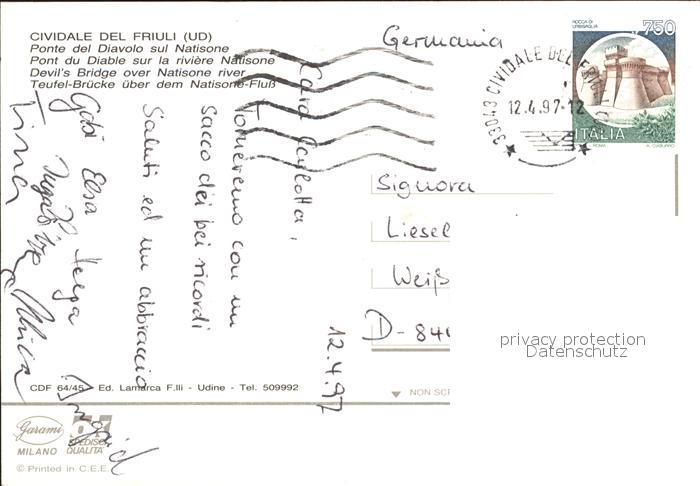 CIVIDALE DEL FRIULI (UD)
Ponte del Diavolo sul Natisone
Pont du Diable sur la rivière Natisone
Devil's Bridge over Natisone river
Teufel-Brücke über dem Natisone-Fluß
Germania
ROCCA DI URBISAGLIA
750
33043 CIVIDALE DEL
12.4.97-12
ITALIA
ROMA
Cara
Torneremo con un
sacco dei bei ricordi
Saluti ed un abbraccio
Gabi Elsa Helga
Tina
Ingrid
12.4.97
Signora
Liesel
Weiß
D-84
privacy protection
Datenschutz
CDF 64/45 Ed. Lamarca F.lli - Udine - Tel. 509992
NON SC
Garami
MILANO
QUALITÀ
© Printed in C.E.E.